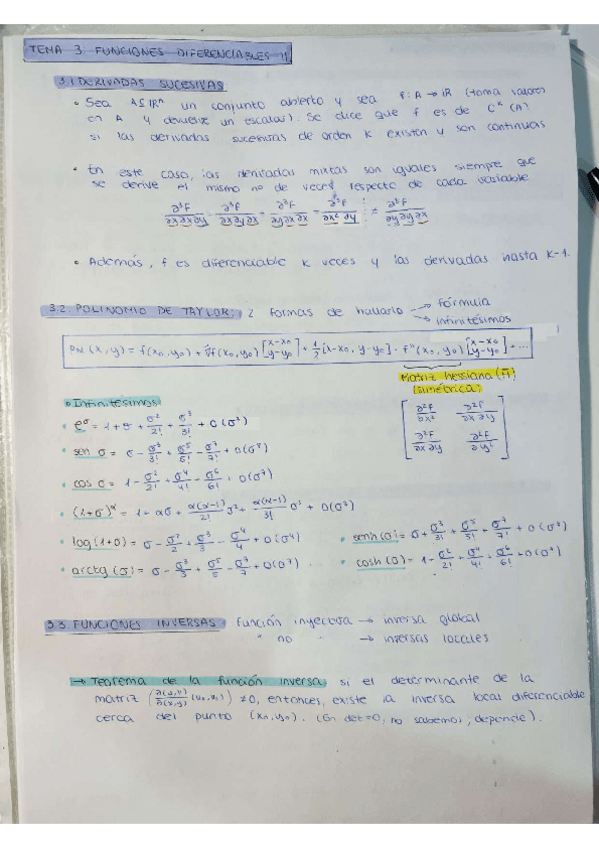 TEMA 3. FUNCIONES DIFERENCIABLES II
3.1 DERIVADAS SUCESIVAS
• Sea A⊆ℝⁿ un conjunto abierto y sea f: A → ℝ (toma valores
en A y devuelve un escalar). Se dice que f es de Cᴷ(A)
si las derivadas sucesivas de orden K existen y son continuas
• En este caso, las derivadas mixtas son iguales siempre que
se derive el mismo nº de veces respecto de cada variable
∂³F/∂x∂x∂y = ∂³F/∂x∂y∂x = ∂³F/∂y∂x∂x = ∂³F/∂x² ∂y ¦ = ∂³F/∂y∂y∂x
• Además, f es diferenciable k veces y las derivadas hasta K-1.
3.2. POLINOMIO DE TAYLOR: 2 formas de hallarlo → fórmula
→ infinitésimos
Pn(x,y) = f(x₀,y₀) + ∇f(x₀,y₀) [x-x₀ y-y₀] + 1/2 [x-x₀, y-y₀] · F"(x₀,y₀) [x-x₀ y-y₀] + ...
Matriz hessiana (H)
(simétrica)
[∂²F/∂x² ∂²F/∂x∂y
∂²F/∂x∂y ∂²F/∂y²]
• Infinitésimos
• e^σ = 1+σ+σ²/2!+σ³/3!+O(σ³)
• sen σ = σ-σ³/3!+σ⁵/5!-σ⁷/7!+O(σ⁸)
• cos σ = 1-σ²/2!+σ⁴/4!-σ⁶/6!+O(σ⁷)
• (1+σ)^α = 1+ασ+α(α-1)/2! σ²+α(α-1)/3! σ³+O(σ³)
• log(1+σ) = σ-σ²/2+σ³/3-σ⁴/4+O(σ⁴)
• senh(σ)= σ+σ³/3!+σ⁵/5!+σ⁷/7!+O(σ⁸)
• arctg(σ) = σ-σ³/3+σ⁵/5-σ⁷/7+O(σ⁷)
• cosh(σ)= 1-σ²/2!+σ⁴/4!+σ⁶/6!+O(σ⁷)
3.3. FUNCIONES INVERSAS: función inyectora → inversa global
" no " → inversas locales
→ Teorema de la función inversa: si el determinante de la
matriz (∂(u,v)/∂(x,y) (x₀,y₀)) ≠0, entonces, existe la inversa local diferenciable
cerca del punto (x₀,y₀). (En det=0, no sabemos, depende).